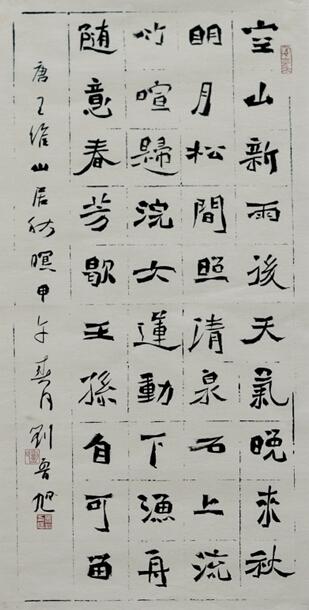 空山新雨後天氣晚来秋
明月松間照清泉石上流
竹喧歸浣女蓮動下漁舟
随意春芳歇王孫自可留
唐王维山居秋暝甲午春月劉魯旭